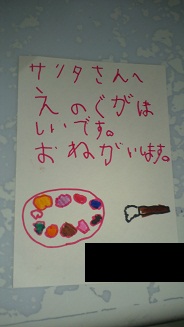 サンタさんへ
えのぐがほ
しいです。
おねがいします。